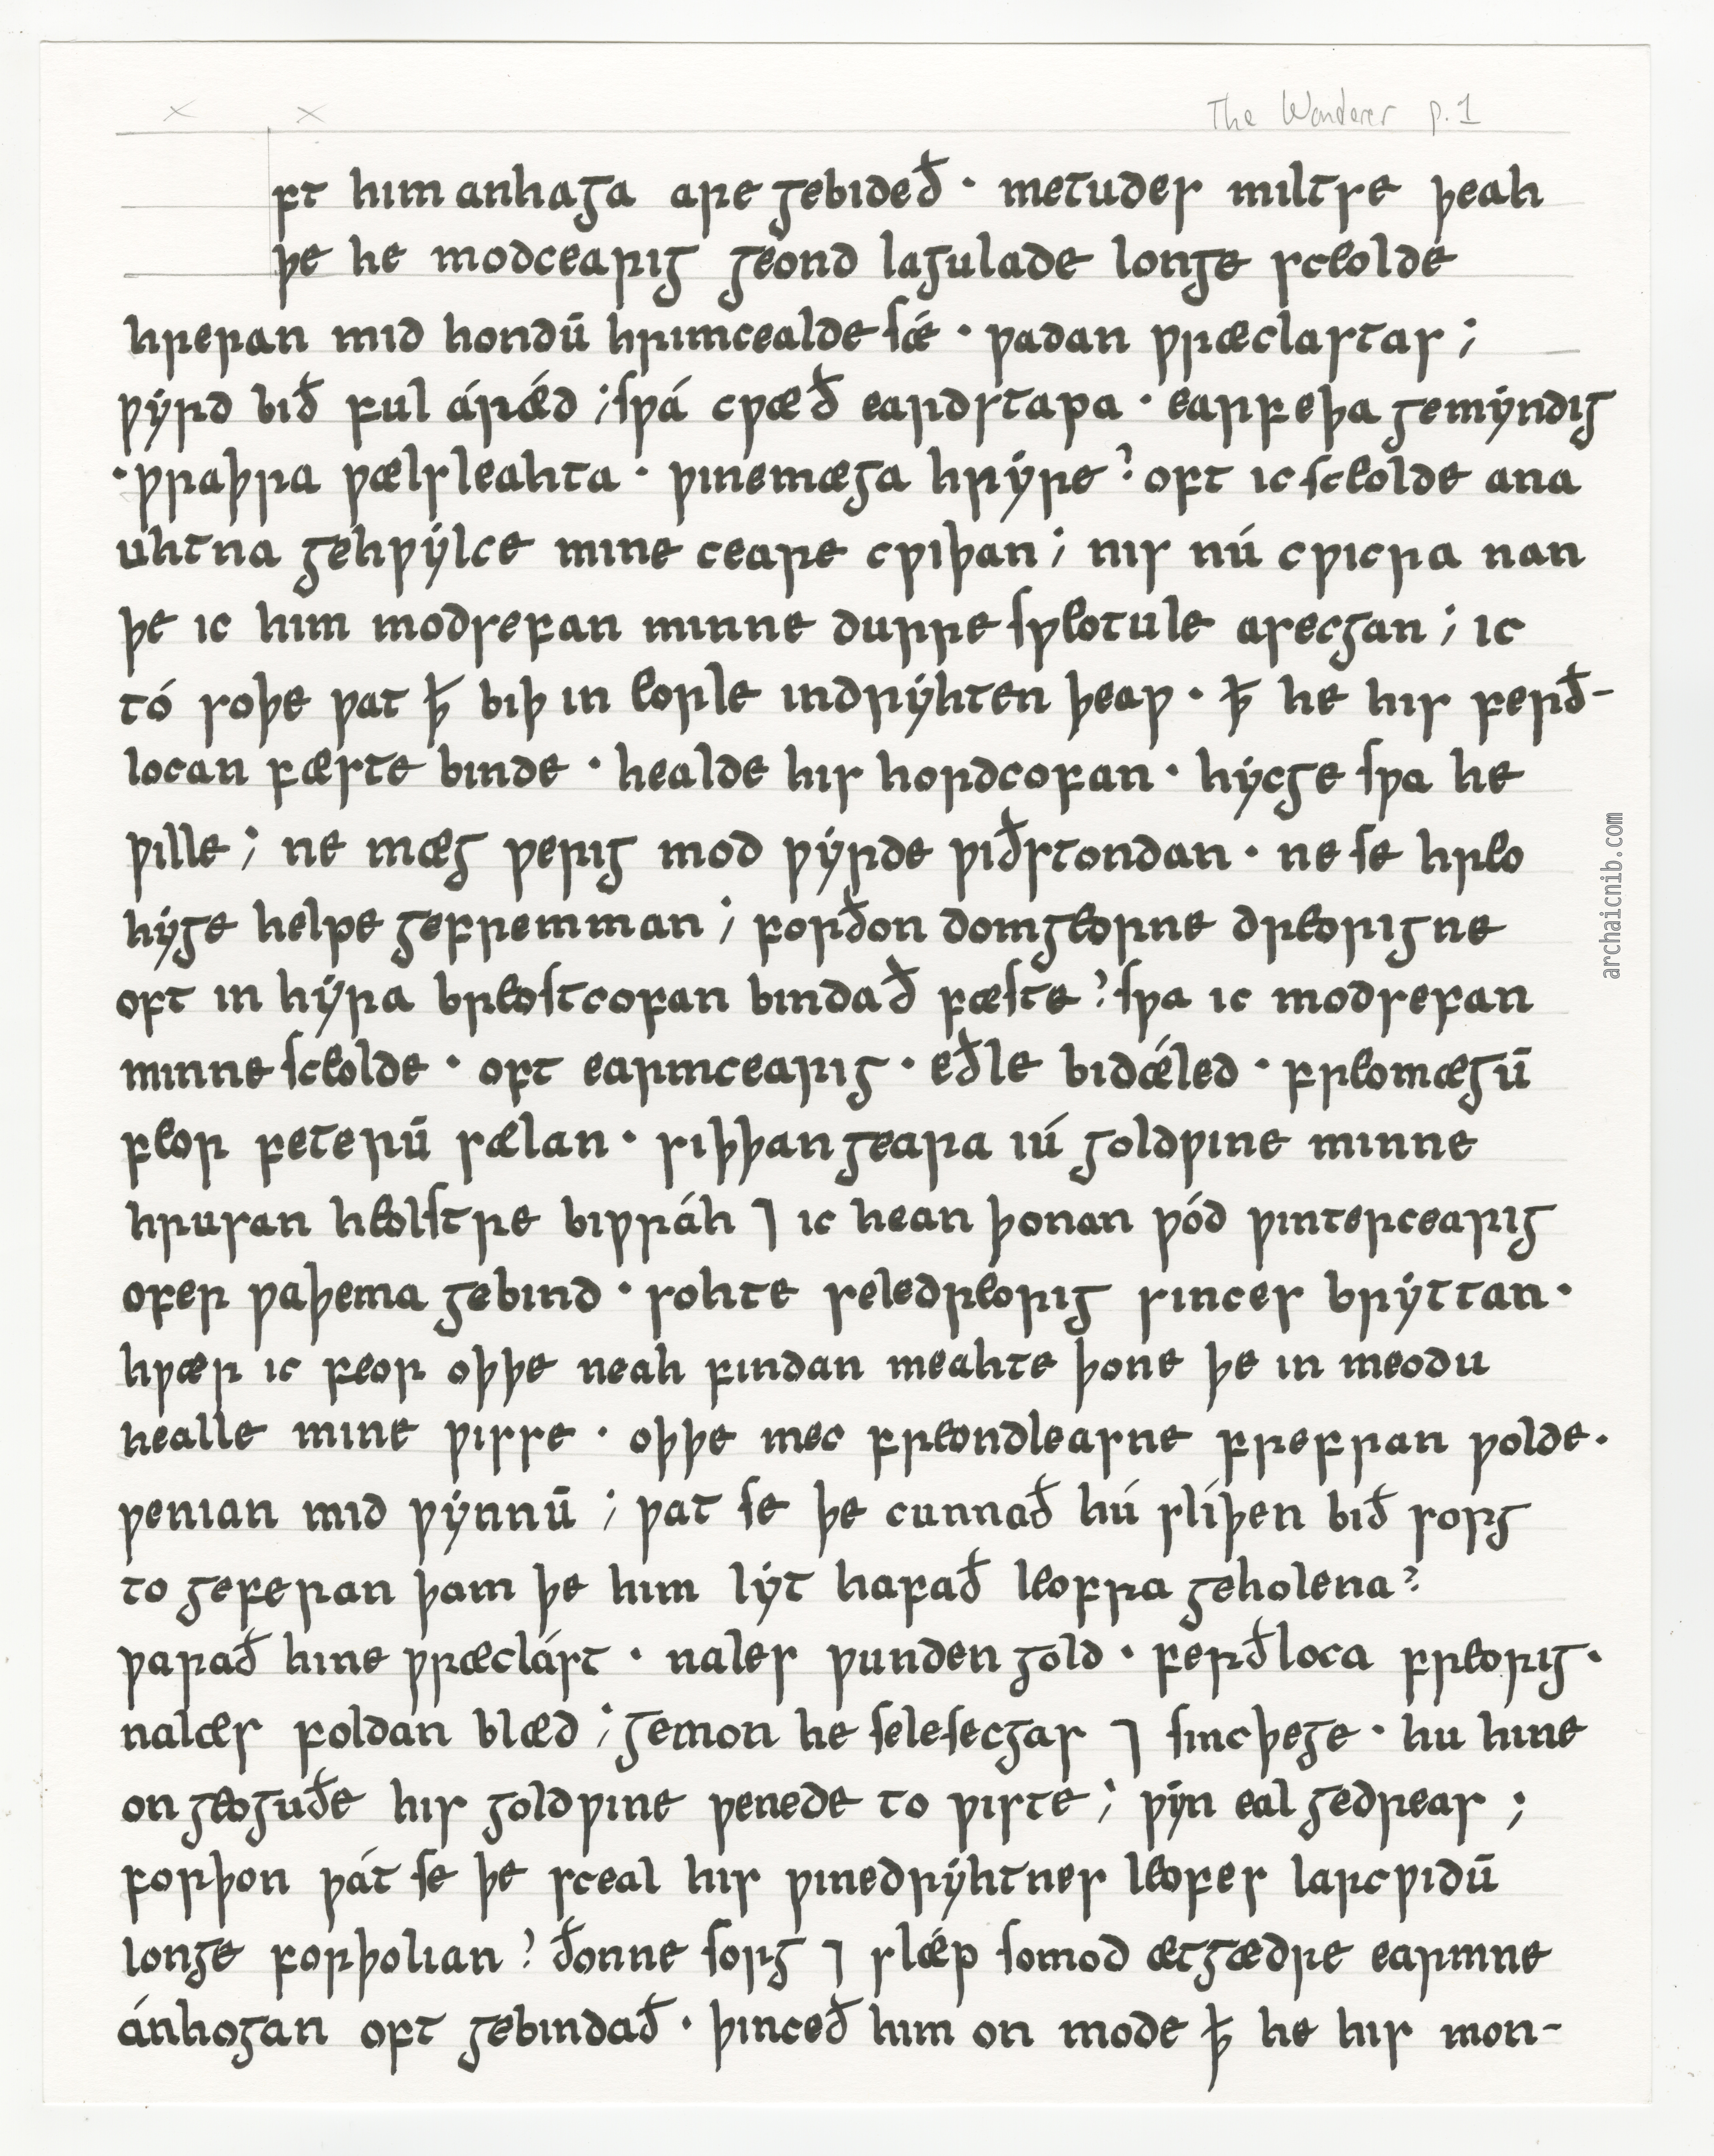 The Wanderer p. 1
ft him anhaga are gebideð · metudes miltse þeah
þe he modcearig geond lagulade longe sceolde
hreran mid hondū hrimcealde sǽ · ƿadan ƿræclastas ;
ƿyrd bið ful árǽd ; sƿá cƿæð eardstapa · earfeþa gemyndig
· ƿraþra ƿælsleahta · ƿinemæga hryre ? oft ic sceolde ana
uhtna gehƿylce mine ceare cƿiþan ; nis nú cƿicra nan
þe ic him modsefan minne durre sƿeotule asecgan ; ic
tó soþe ƿat ꝥ biþ in eorle indryhten þeaƿ · ꝥ he his ferð-
locan fæste binde · healde his hordcofan · hycge sƿa he
ƿille ; ne mæg ƿerig mod ƿyrde ƿiðstondan · ne se hreo
hyge helpe gefremman ; forðon domgeorne dreorigne
oft in hyra breostcofan bindað fæste ? sƿa ic modsefan
minne sceolde · oft earmcearig · eðle bidǽled · freomægū
feor feterū sælan · siþþan geara iú goldƿine minne
hrusan heolstre biƿráh ⁊ ic hean þonan ƿód ƿintercearig
ofer ƿaþema gebind · sohte seledreorig sinces bryttan ·
hƿær ic feor oþþe neah findan meahte þone þe in meodu
healle mine ƿisse · oþþe mec freondleasne frefran ƿolde ·
ƿenian mid ƿynnū ; ƿat se þe cunnað hú slíþen bið sorg
to geferan þam þe him lyt hafað leofra geholena ?
ƿarað hine ƿræclást · nales ƿunden gold · ferðloca freorig ·
nalæs foldan blæd ; gemon he selesecgas ⁊ sincþege · hu hine
on geoguðe his goldƿine ƿenede to ƿiste ; ƿyn eal gedreas ;
forþon ƿát se þe sceal his ƿinedryhtnes leofes larcƿidū
longe forþolian ? ðonne sorg ⁊ slǽp somod ætgædre earmne
ánhogan oft gebindað · þinceð him on mode ꝥ he his mon-
archaicnib.com